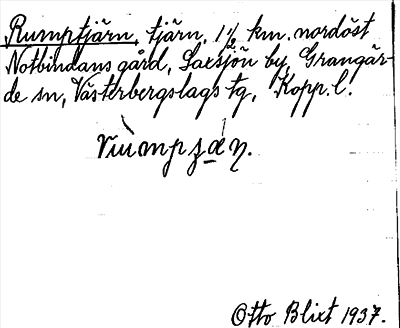 Rumptjärn, tjärn, 1 1/2 km. nordöst
Notbindans gård, Saxsjön by, Grangär-
de sn, Västerbergslags tg, Kopp. l.
Otto Blixt 1937.